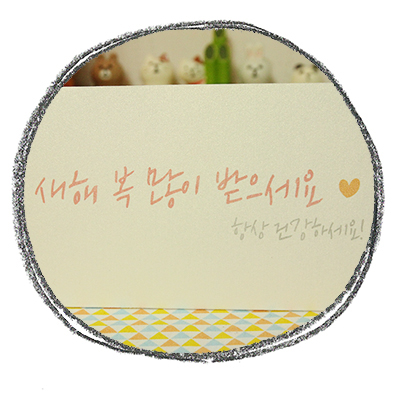 새해 복 많이 받으세요
항상 건강하세요!